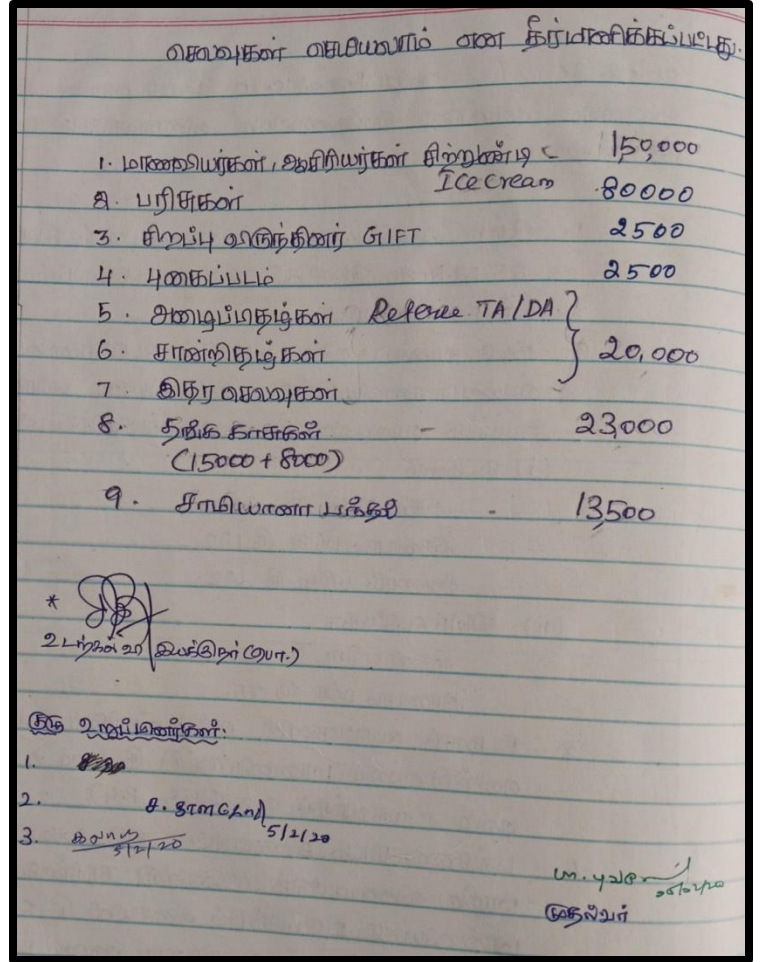 செலவுகள் செய்யலாம் என தீர்மானிக்கப்பட்டது.
1. மாணவியர்கள், ஆசிரியர்கள் சிற்றுண்டி 150,000
Ice cream
2. பரிசுகள் 80000
3. சிறப்பு விருந்தினர் GIFT 2500
4. புகைப்படம் 2500
5. அழைப்பிதழ்கள் Referee TA/DA
6. சான்றிதழ்கள் 20,000
7. இதர செலவுகள்
8. தங்க காசுகள் - 23,000
(15000 + 8000)
9. சாமியானா பந்தல் - 13,500
*
உடற்கல்வி இயக்குநர் (பொ.)
குழு உறுப்பினர்கள்:
1.
2. ச.
5/2/20
3.
5/2/20
முதல்வர்